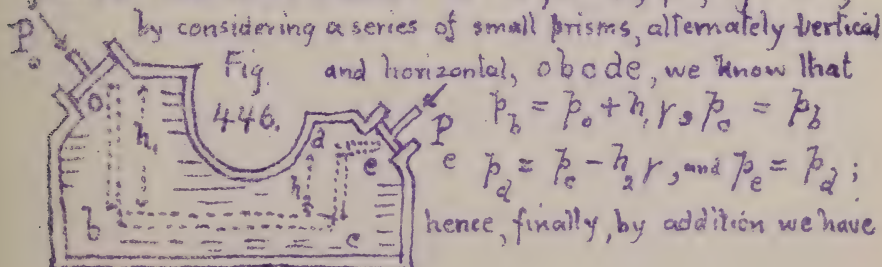 by considering a series of small prisms, alternately vertical
Fig. 446. and horizontal, obcde, we know that
p_b = p_o + h_1 γ, p_c = p_b
p_d = p_c - h_2 γ, and p_e = p_d;
hence, finally, by addition we have
P_o
o
h_1
b
d
h_2
e
c
P_e